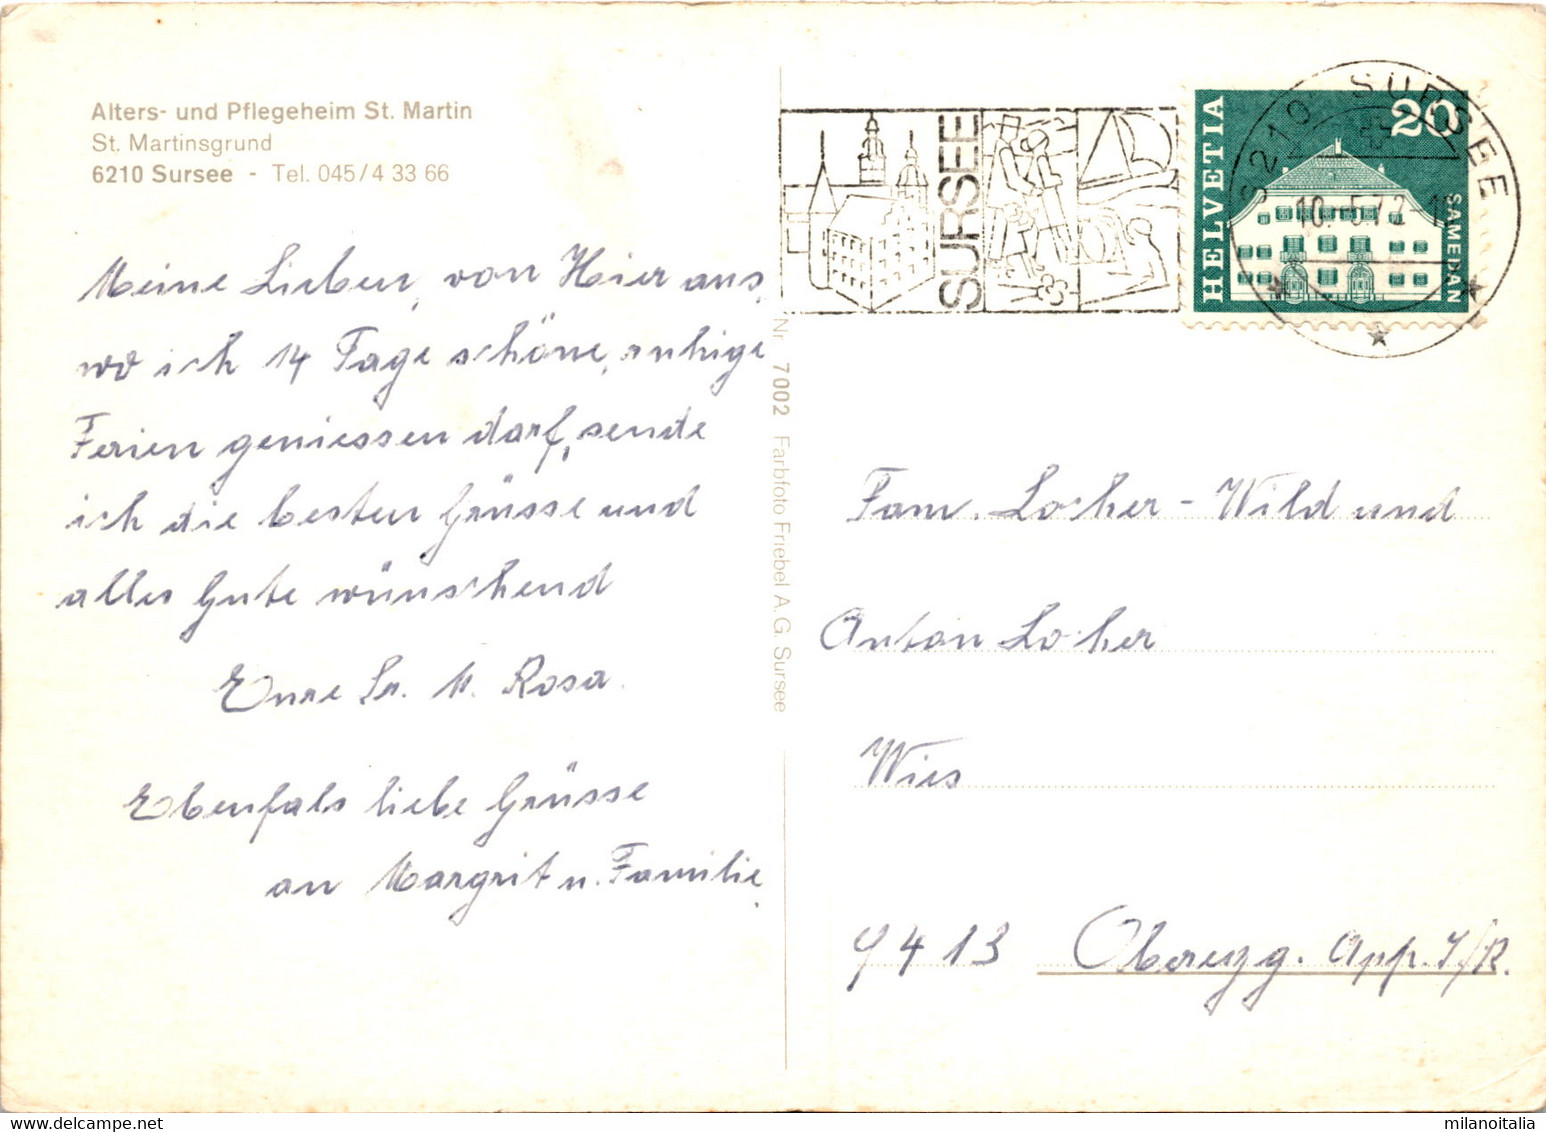 Alters- und Pflegeheim St. Martin
St. Martinsgrund
6210 Sursee - Tel. 045/4 33 66
Meine Lieben, von Hier aus,
wo ich 14 Tage schöne, ruhige
Ferien geniessen darf, sende
ich die besten Grüsse und
alles Gute wünschend
Eure Sr. M. Rosa.
Ebenfals liebe Grüsse
an Margrit u. Familie.
Nr. 7002 Farbfoto Friebel A.G. Sursee
SURSEE
6210 SURSEE
10.-5.72-1
HELVETIA
20
SAMEDAN
Fam. Locher-Wild und
Anton Locher
Wies
9413 Oberegg. App. I/R.
milanoitalia